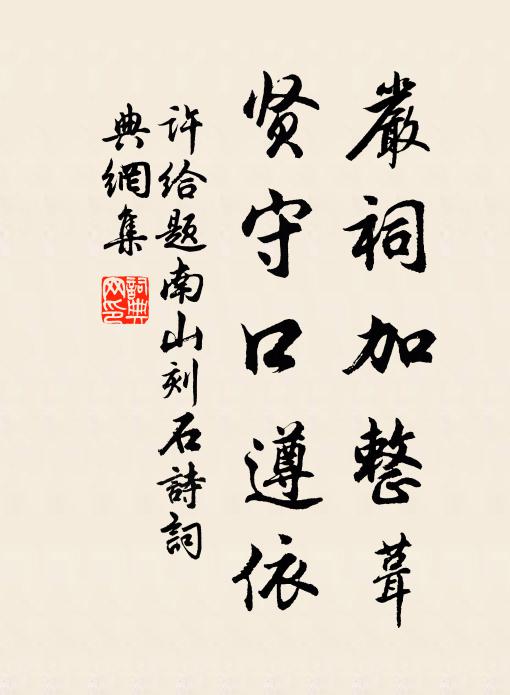 嚴祠加整葺
贤守口遵依
许给题南山刻石詩词
典網集
詞典网印